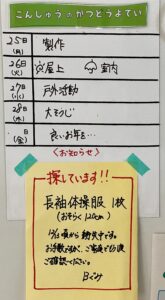 こんしゅうのかつどうよてい
25日(月) 製作
26日(火) 屋上 室内
27日(水) 戸外活動
28日(木) 大そうじ
日(金) 良いお年を…
〈お知らせ〉
探しています!!
長袖体操服 1枚
(おそらく120cm)
から紛失中です。
お手数ですが、ご家庭で
ご確認ください。
Bぐみ